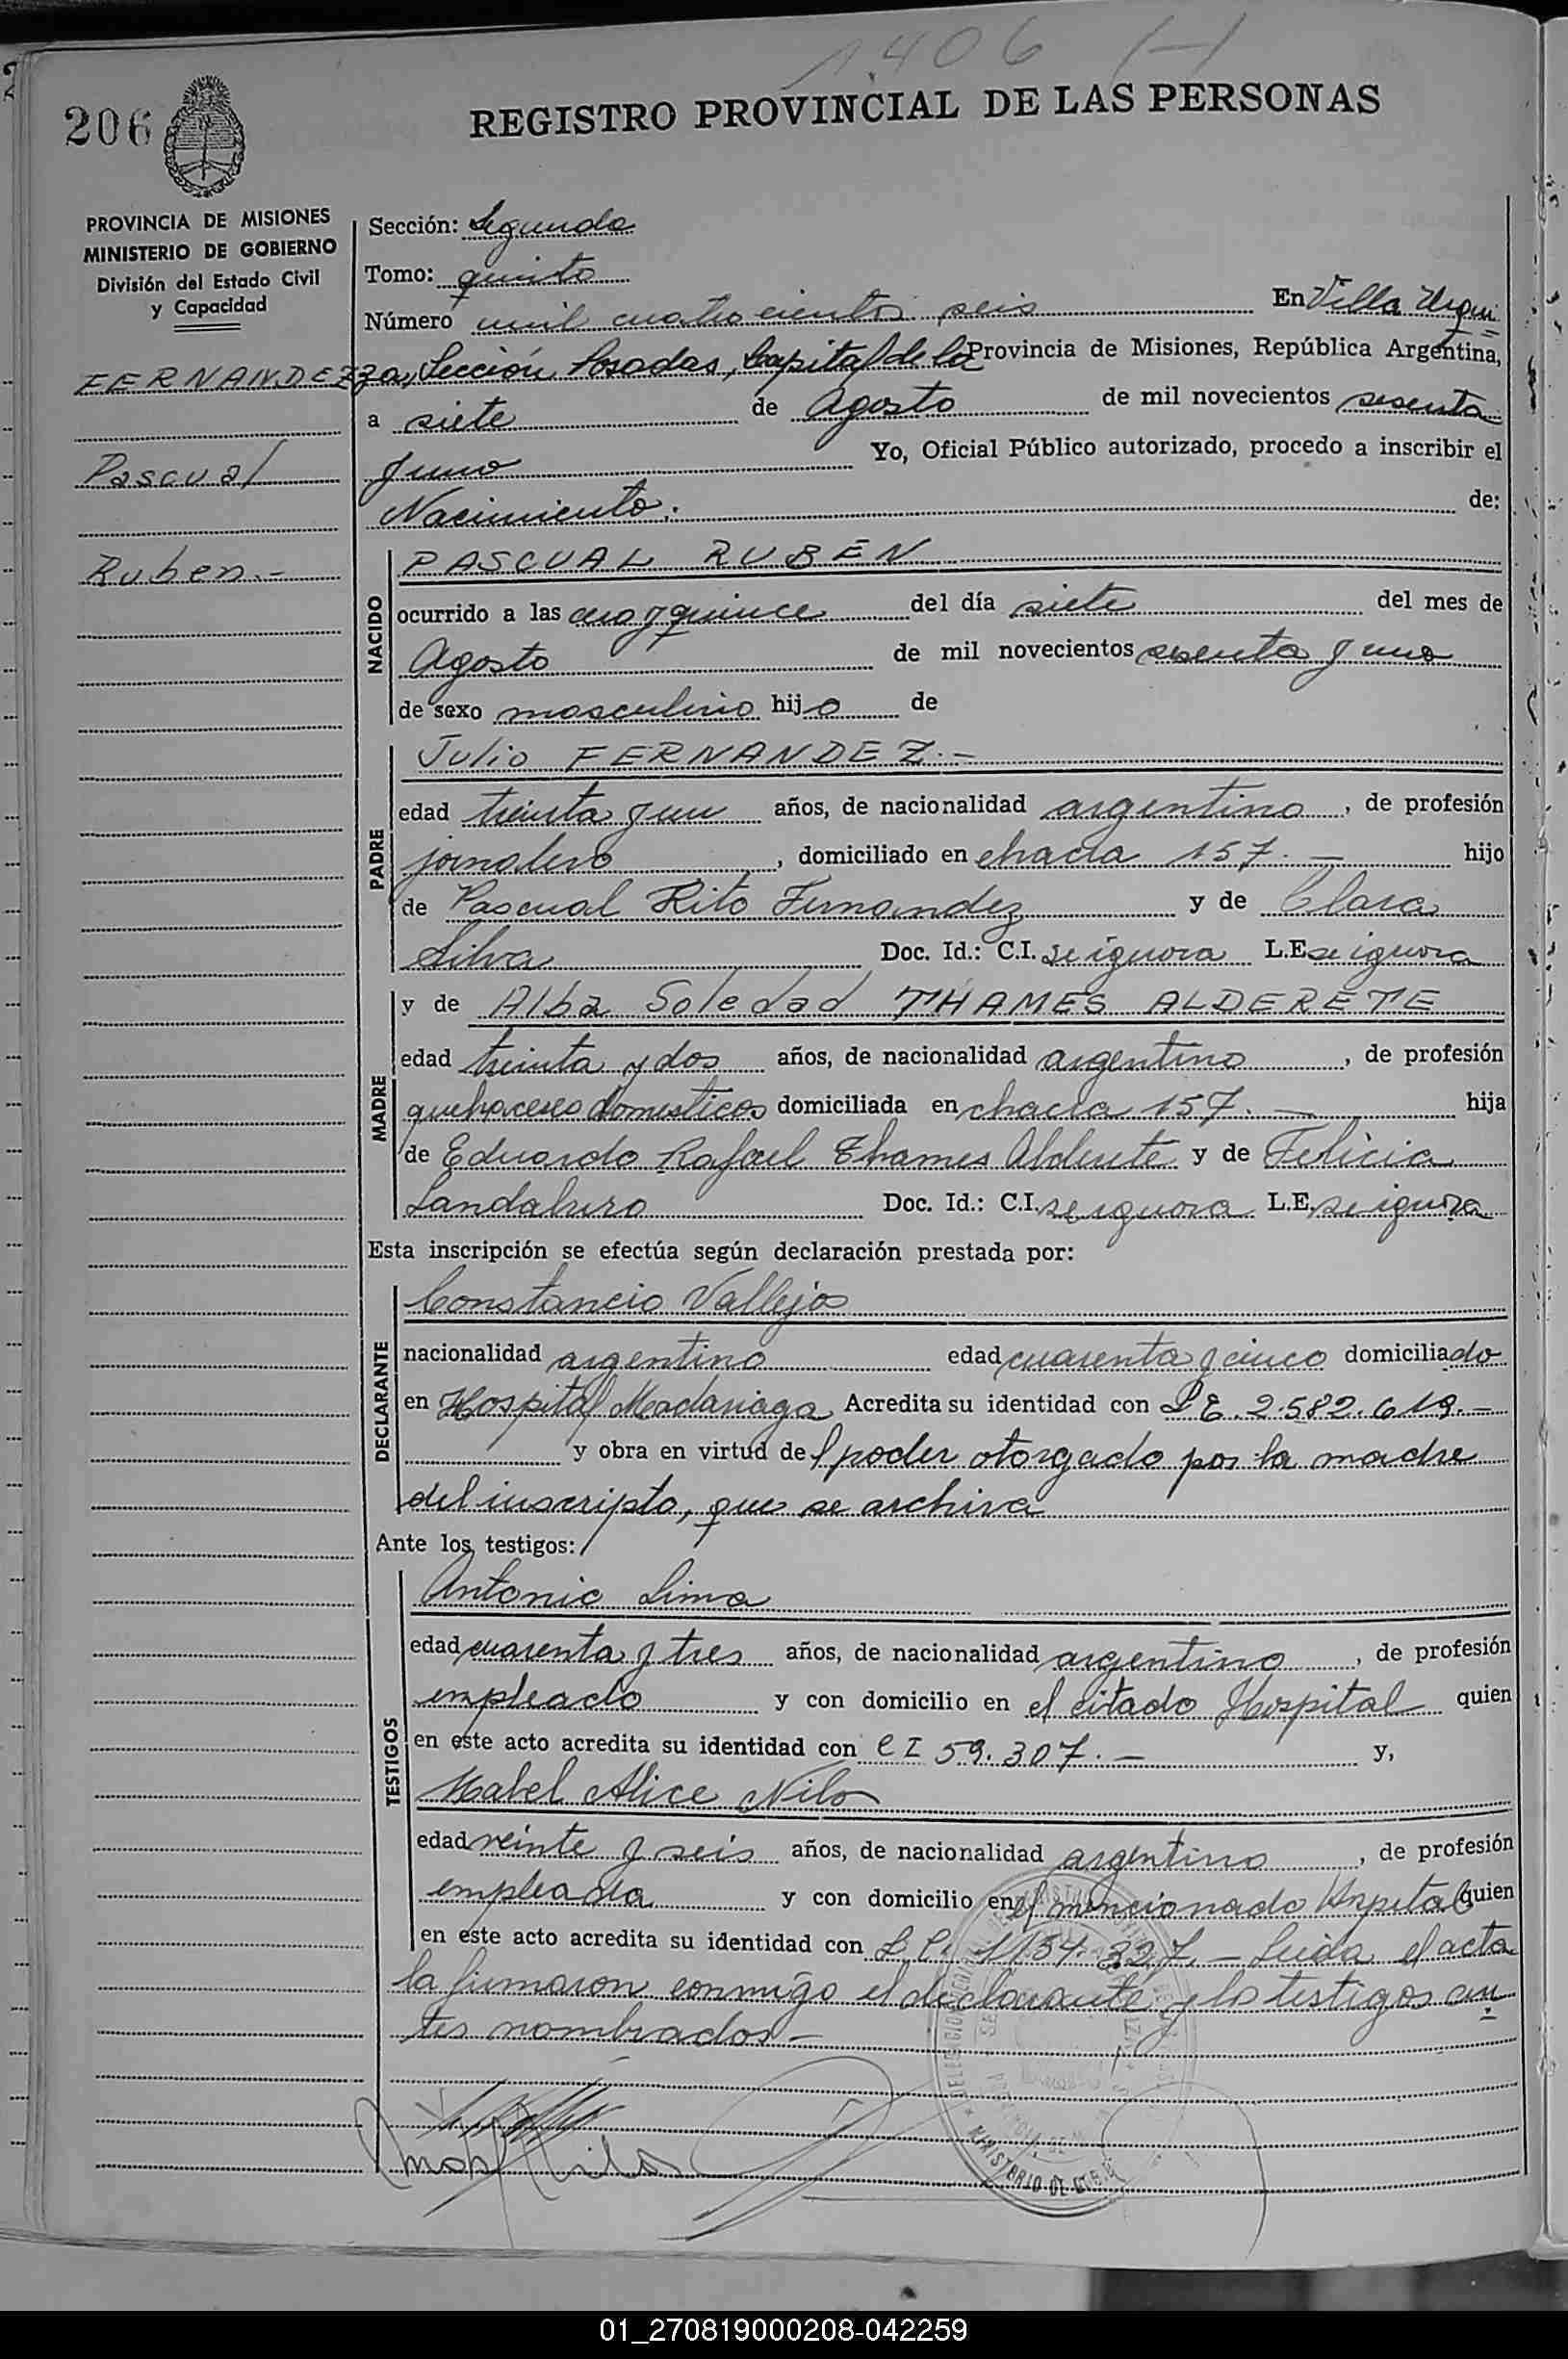 1406 (-)
206
REGISTRO PROVINCIAL DE LAS PERSONAS
PROVINCIA DE MISIONES
MINISTERIO DE GOBIERNO
División del Estado Civil
y Capacidad
FERNANDEZ
Pascual
Ruben.-
Sección: Segunda
Tomo: quinto
Número mil cuatrocientos seis En Villa Urqui=
za, Sección Posadas, Capital de la Provincia de Misiones, República Argentina,
a siete de Agosto de mil novecientos sesenta
y uno Yo, Oficial Público autorizado, procedo a inscribir el
Nacimiento. de:
NACIDO
PASCUAL RUBEN
ocurrido a las cero y quince del día siete del mes de
Agosto de mil novecientos sesenta y uno
de sexo masculino hijo de
PADRE
Julio FERNANDEZ.-
edad treinta y un años, de nacionalidad argentino, de profesión
jornalero, domiciliado en chacra 157.- hijo
de Pascual Rito Fernandez y de Clara
Silva Doc. Id.: C.I. se ignora L.E. se ignora
MADRE
y de Alba Soledad THAMES ALDERETE
edad treinta y dos años, de nacionalidad argentino, de profesión
quehaceres domesticos domiciliada en chacra 157.- hija
de Eduardo Rafael Thames Alderete y de Felicia
Doc. Id.: C.I. se ignora L.E. se ignora
Esta inscripción se efectúa según declaración prestada por:
DECLARANTE
Constancio Vallejos
nacionalidad argentino edad cuarenta y cinco domiciliado
en Hospital Madariaga Acredita su identidad con L E. 2.582.619.-
y obra en virtud del poder otorgado por la madre
del inscripto, que se archiva
Ante los testigos:
TESTIGOS
Antonio Lima
edad cuarenta y tres años, de nacionalidad argentino, de profesión
empleado y con domicilio en el citado Hospital quien
en este acto acredita su identidad con C I 59.307.- y,
Mabel Alice Nilo
edad veinte y seis años, de nacionalidad argentino, de profesión
empleada y con domicilio en el mencionado Hospital quien
en este acto acredita su identidad con L C. 1154.327.- Leida el acta
la firmaron conmigo el declarante y los testigos an=
tes nombrados-
MINISTERIO DE
01_270819000208-042259